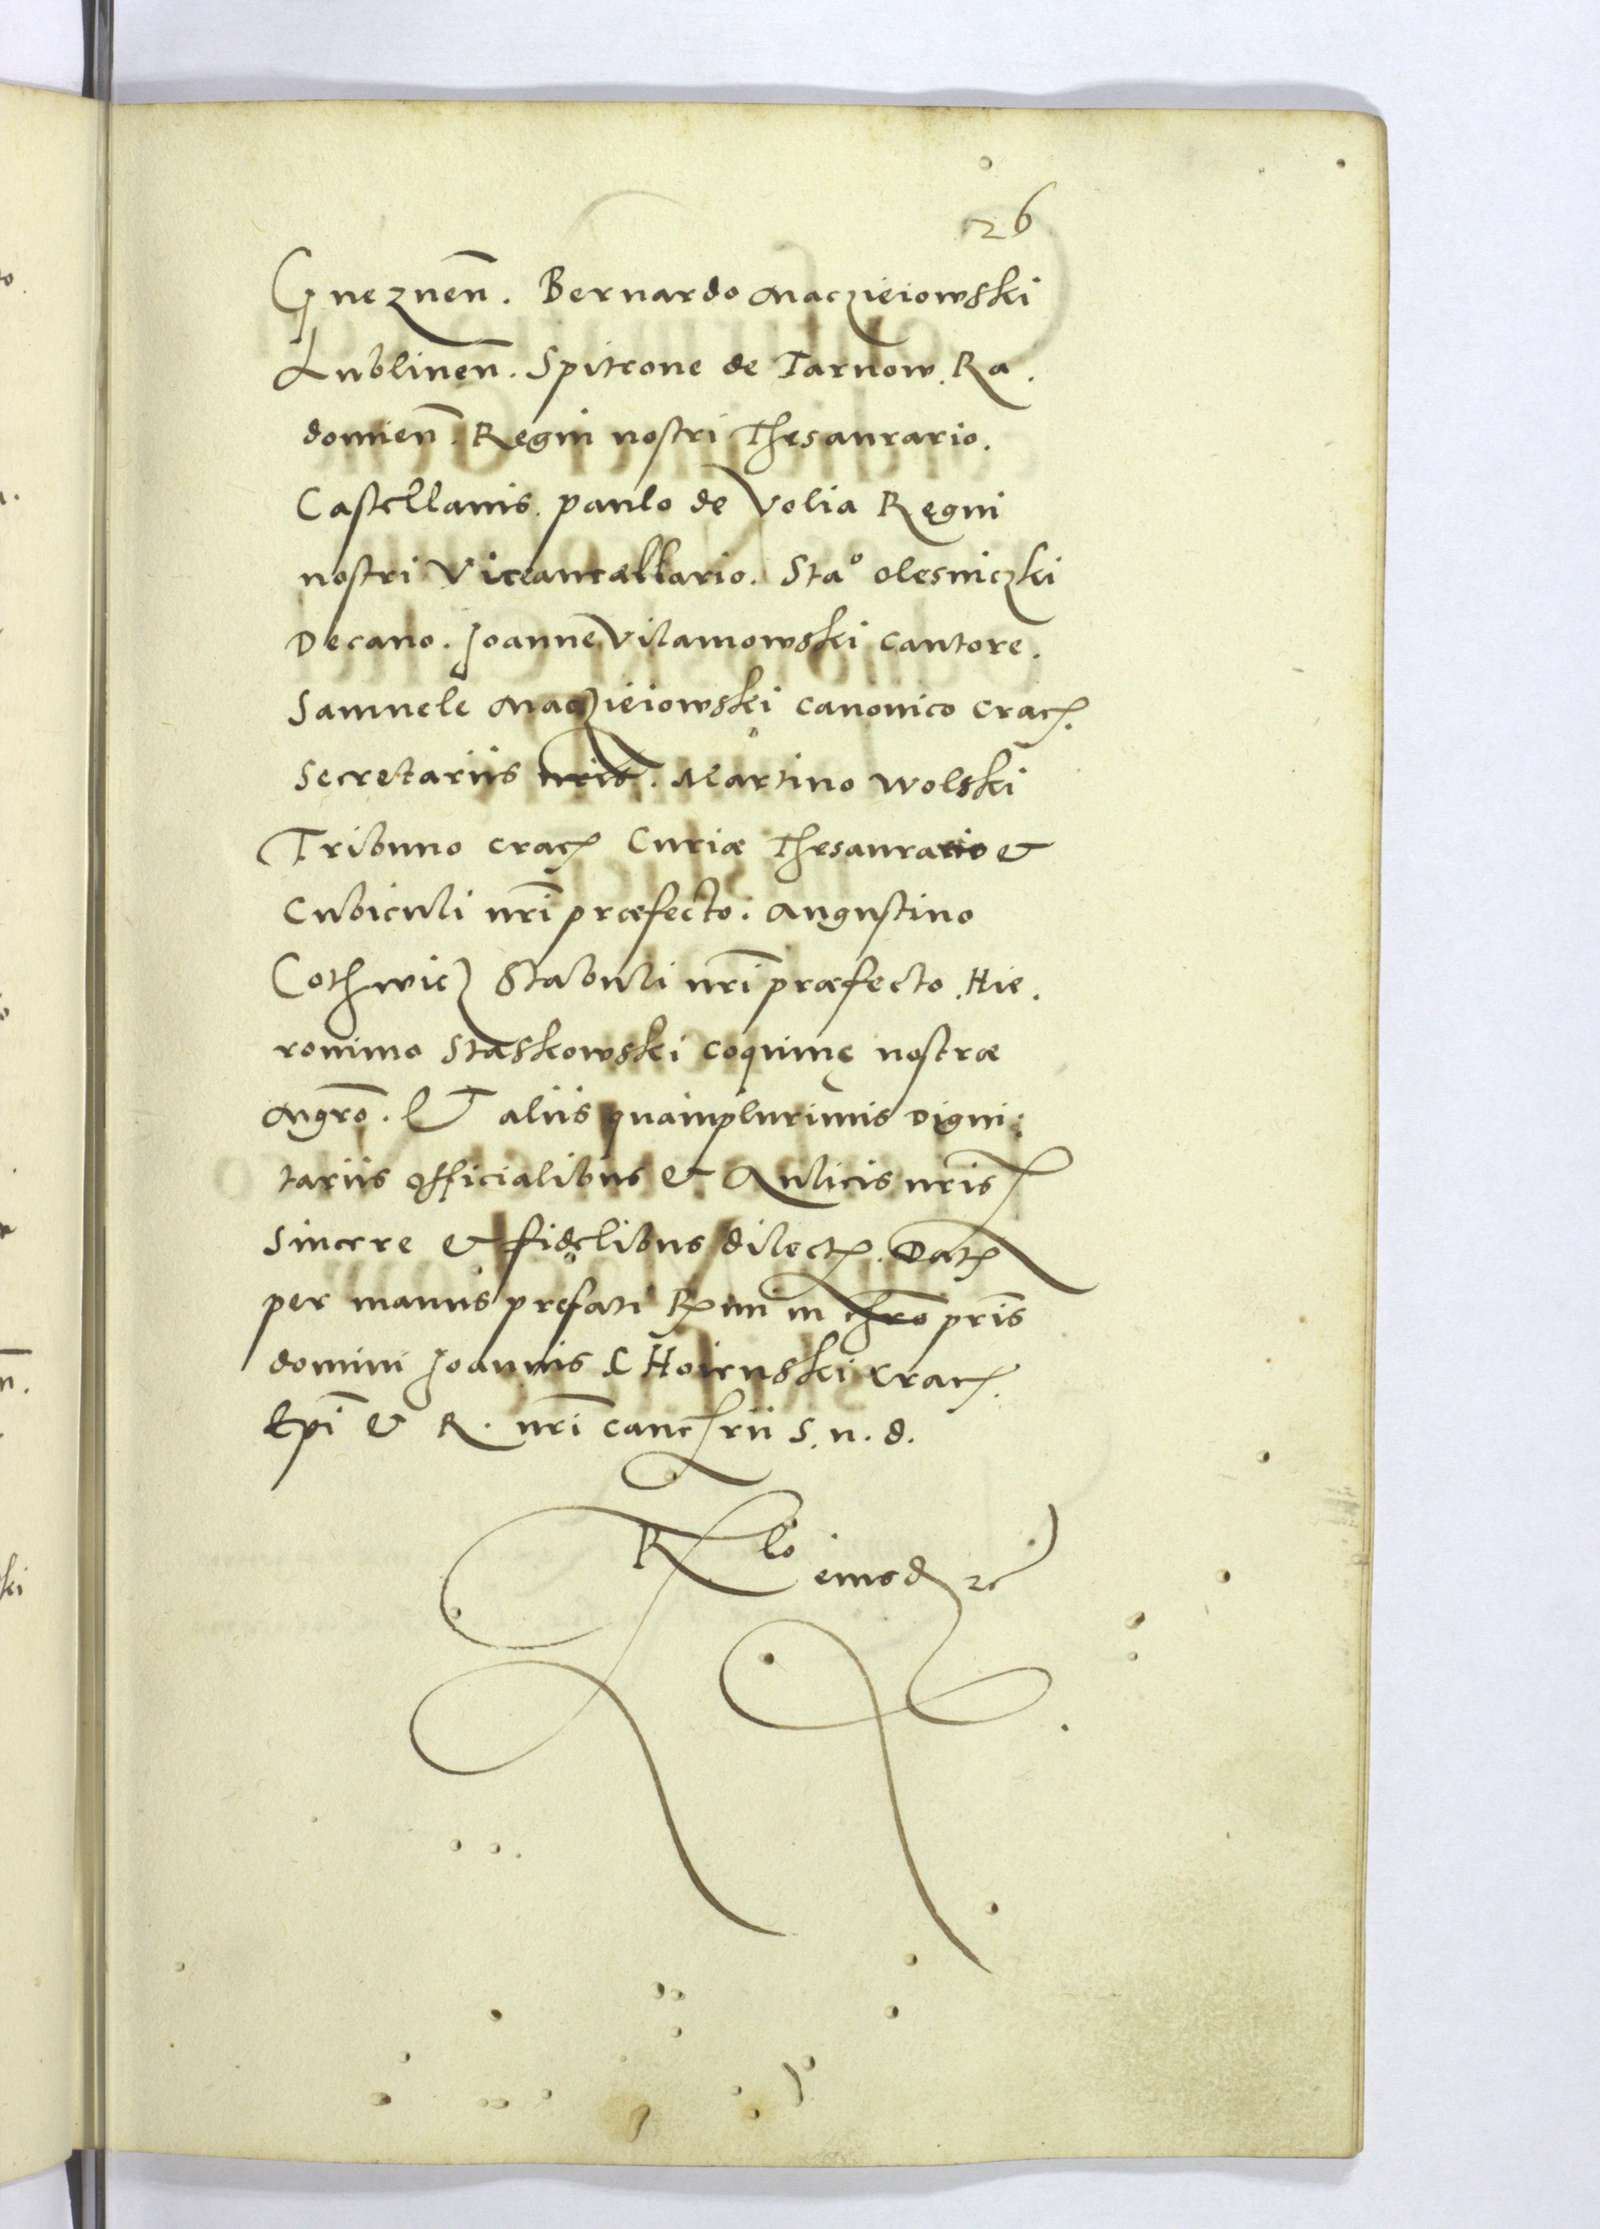 26
Gneznen̄. Bernardo Maczieiowski
Lublinen̄. Spitcone de Tarnow. Ra.
domien̄. Regni nostri Thesaurario.
Castellanis. paulo de Volia Regni
nostri Vicecancellario. Sta° olesniczki
Decano. Joanne Vilamowski cantore.
Samuele Maczieiowski canonico crac.
Secretariis nris. Martino Wolski
Tribuno crac Curiæ Thesaurario &
Cubiculi nr̄i præfecto. Augustino
Cothwicz Stabuli nr̄i præfecto. Hie.
ronimo Staskowski coquinę nostræ
Mgrō. Et aliis quamplurimis Digni:
tariis officialibus & Aulicis nris
Sincere & fidelibus dilect. Dat
per manus pręfati R mi in chro pris
domini Joannis CHoienski Crac.
Epī & R. nr̄i canc rii s. n. d.
R lo eiusd